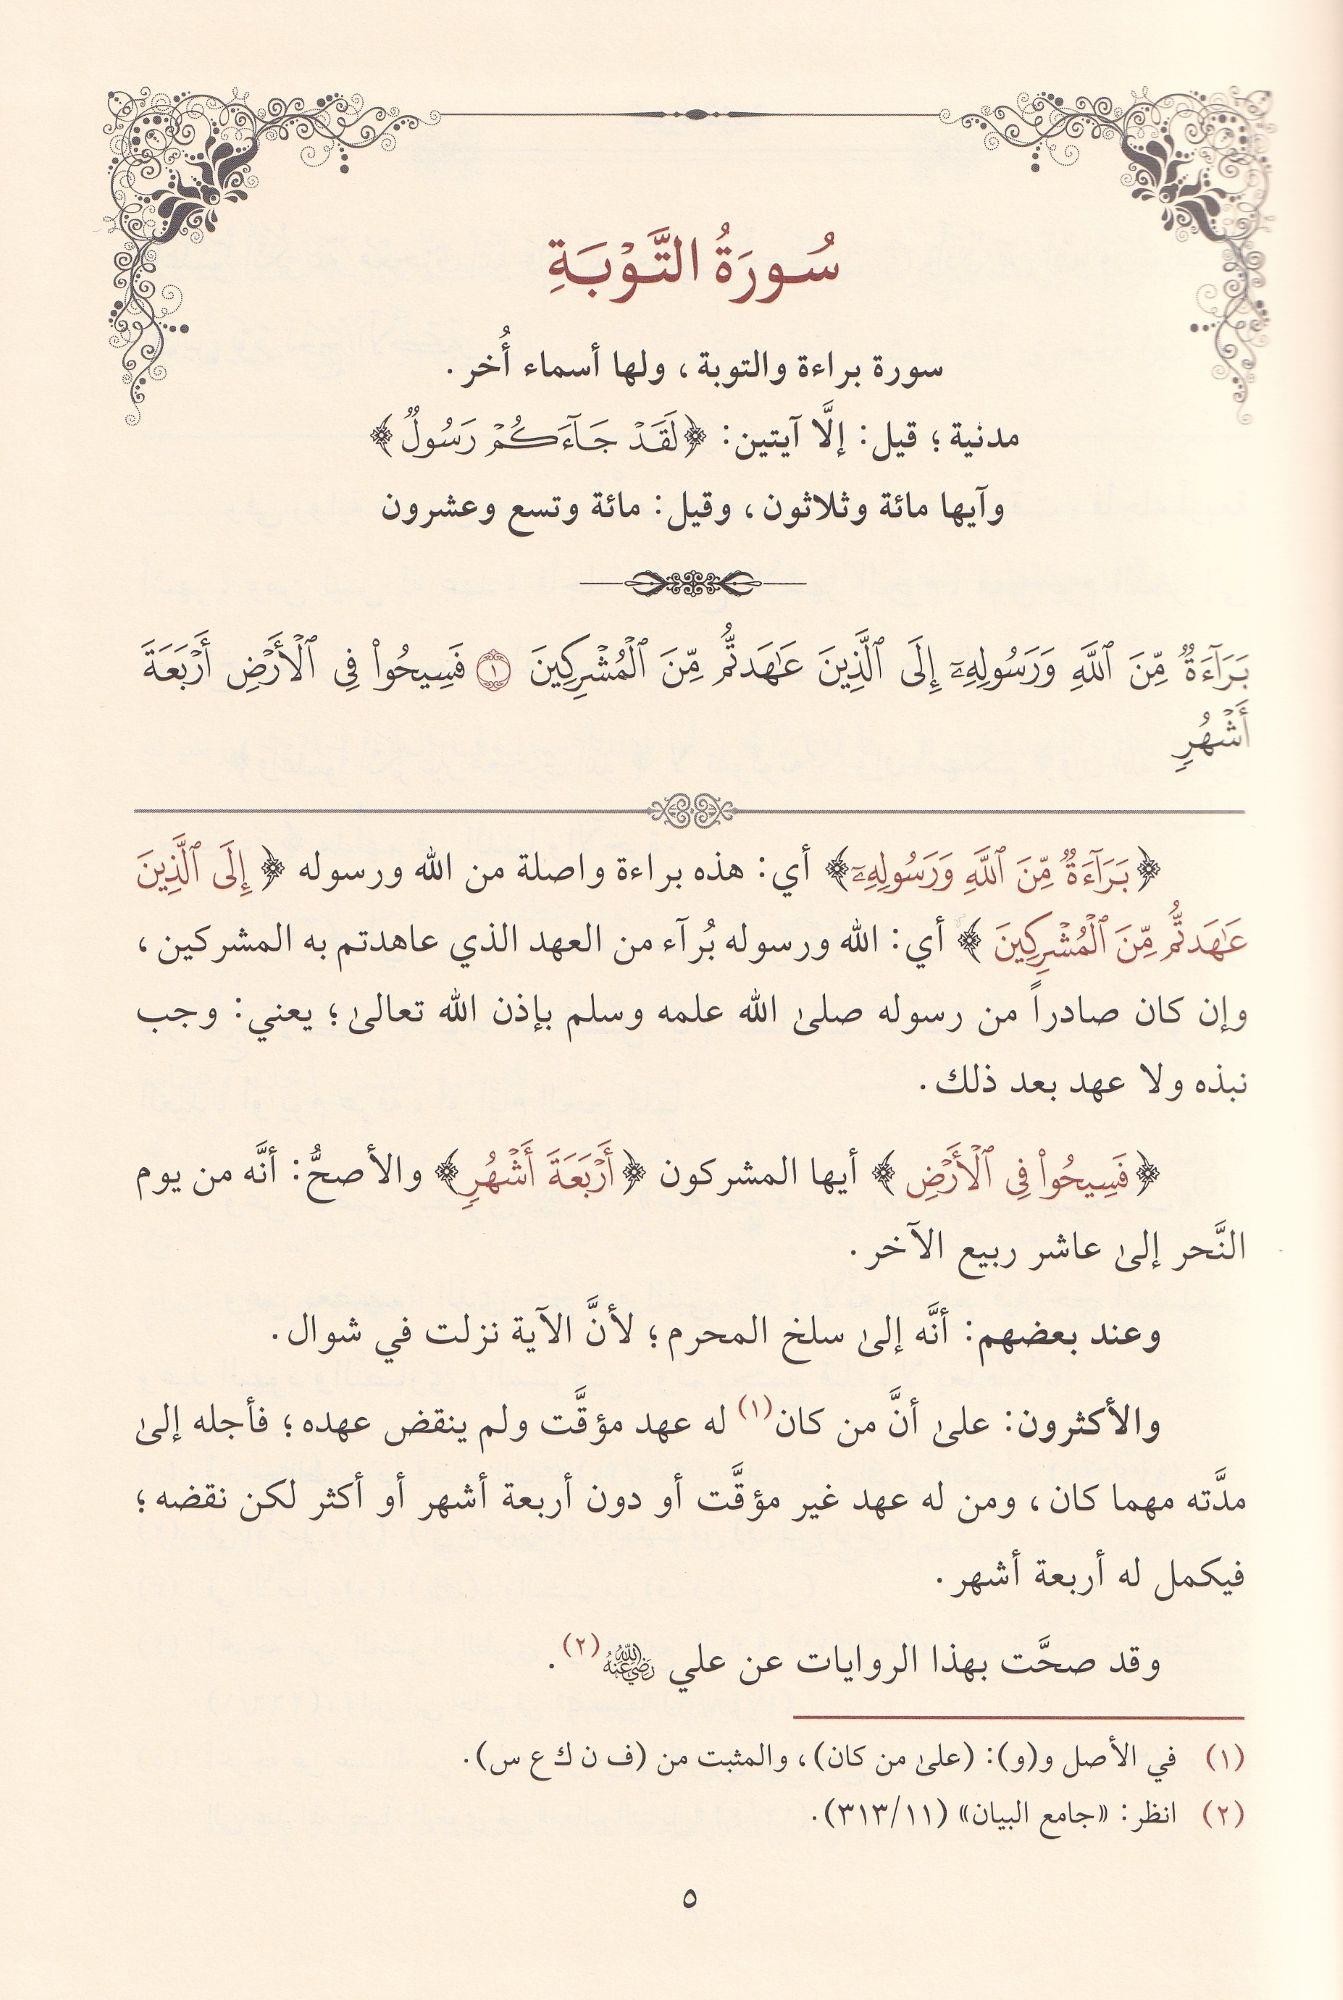 سُورَةُ التَّوْبَةِ
سورة براءة والتوبة، ولها أسماء أُخر.
مدنية؛ قيل: إلَّا آيتين: ﴿لَقَدْ جَآءَكُمْ رَسُولٌ﴾
وآيها مائة وثلاثون، وقيل: مائة وتسع وعشرون
بَرَآءَةٌ مِّنَ ٱللَّهِ وَرَسُولِهِۦٓ إِلَى ٱلَّذِينَ عَٰهَدتُّم مِّنَ ٱلْمُشْرِكِينَ ۝١ فَسِيحُوا۟ فِى ٱلْأَرْضِ أَرْبَعَةَ
أَشْهُرٍ
﴿بَرَآءَةٌ مِّنَ ٱللَّهِ وَرَسُولِهِۦٓ﴾ أي: هذه براءة واصلة من الله ورسوله ﴿إِلَى ٱلَّذِينَ
عَٰهَدتُّم مِّنَ ٱلْمُشْرِكِينَ﴾ أي: الله ورسوله بُرآء من العهد الذي عاهدتم به المشركين،
وإن كان صادراً من رسوله صلىٰ الله علمه وسلم بإذن الله تعالىٰ؛ يعني: وجب
نبذه ولا عهد بعد ذلك.
﴿فَسِيحُوا۟ فِى ٱلْأَرْضِ﴾ أيها المشركون ﴿أَرْبَعَةَ أَشْهُرٍ﴾ والأصحُّ: أنَّه من يوم
النَّحر إلىٰ عاشر ربيع الآخر.
وعند بعضهم: أنَّه إلىٰ سلخ المحرم؛ لأنَّ الآية نزلت في شوال.
والأكثرون: علىٰ أنَّ من كان(١) له عهد مؤقَّت ولم ينقض عهده؛ فأجله إلىٰ
مدَّته مهما كان، ومن له عهد غير مؤقَّت أو دون أربعة أشهر أو أكثر لكن نقضه؛
فيكمل له أربعة أشهر.
وقد صحَّت بهذا الروايات عن علي رضي الله عنه(٢).
(١) في الأصل و(و): (علىٰ من كان)، والمثبت من (ف ن ك ع س).
(٢) انظر: «جامع البيان» (٣١٣/١١).
٥